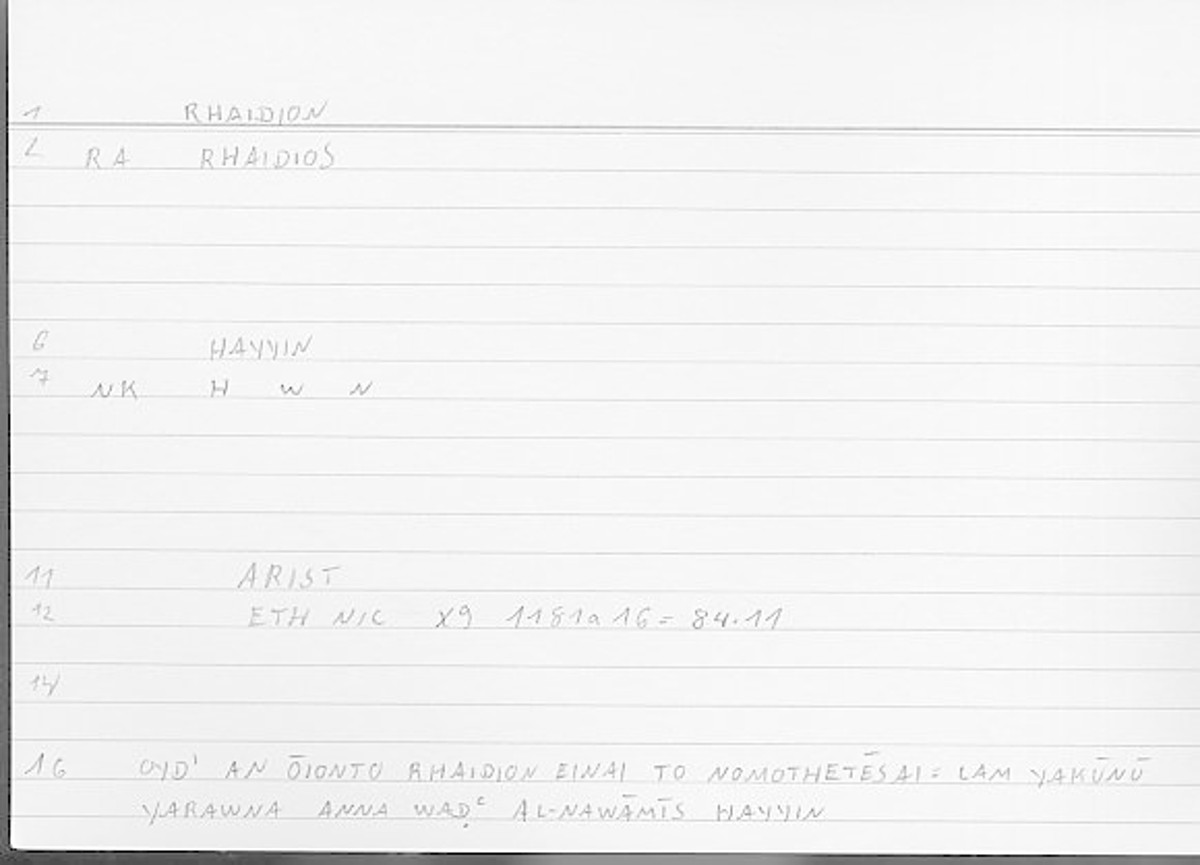 1 RHAIDION
2 RA RHAIDIOS
6 HAYYIN
7 NK H W N
11 ARIST
12 ETH NIC X9 1181a16 = 84.11
14
16 OYD' AN ŌIONTO RHAIDION EINAI TO NOMOTHETĒSAI = LAM YAKŪNŪ
YARAWNA ANNA WAḌʿ AL-NAWĀMĪS HAYYIN